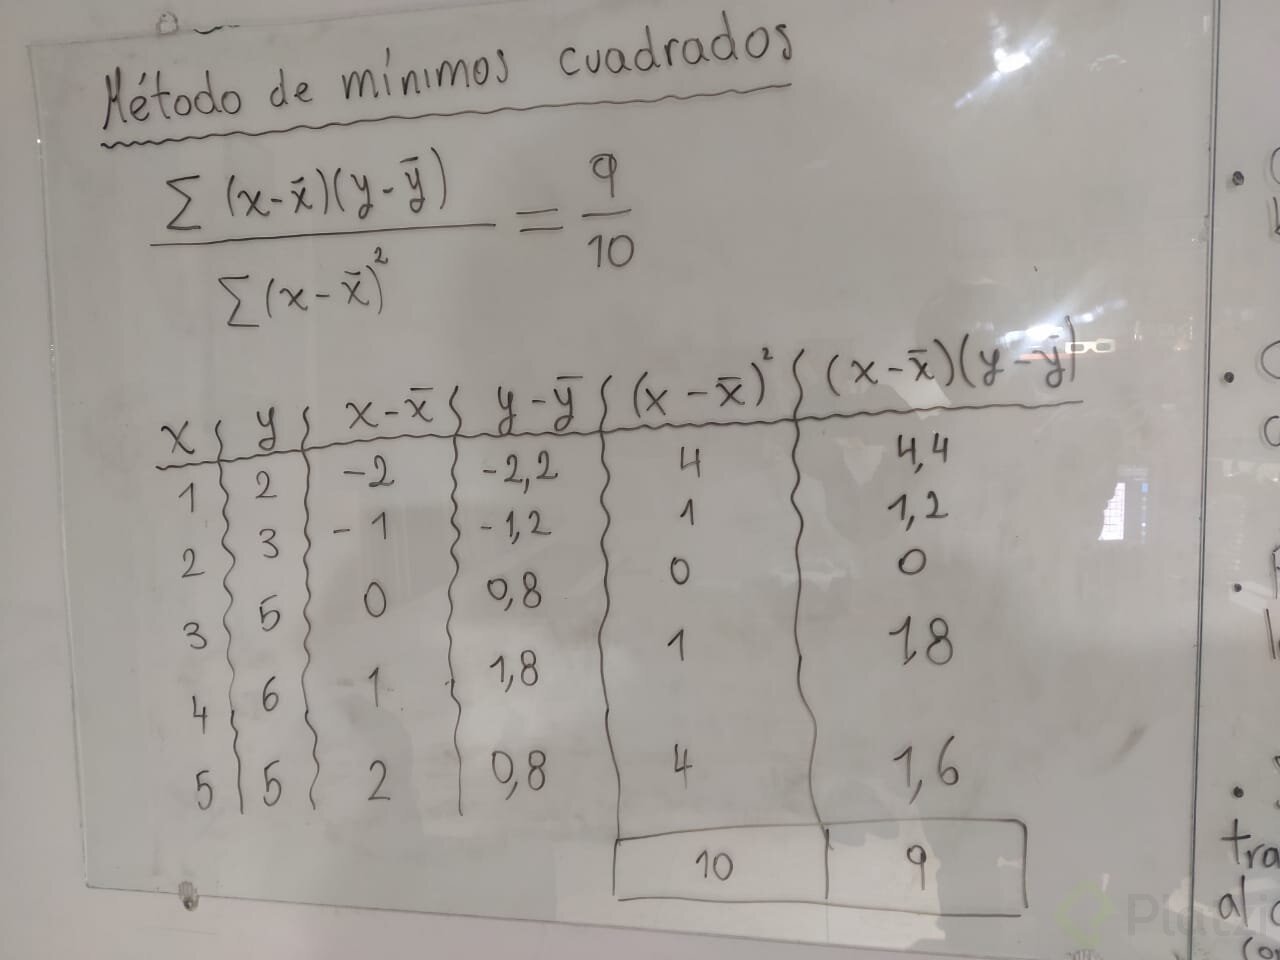 Método de mínimos cuadrados
Σ (x-x̄)(y-ȳ)
= 9
Σ(x-x̄)²
10
x y x-x̄ y-ȳ (x-x̄)² (x-x̄)(y-ȳ)
1 2 -2 -2,2 4 4,4
2 3 -1 -1,2 1 1,2
3 5 0 0,8 0 0
4 6 1 1,8 1 1,8
5 5 2 0,8 4 1,6
10 9
tra
al
Platzi